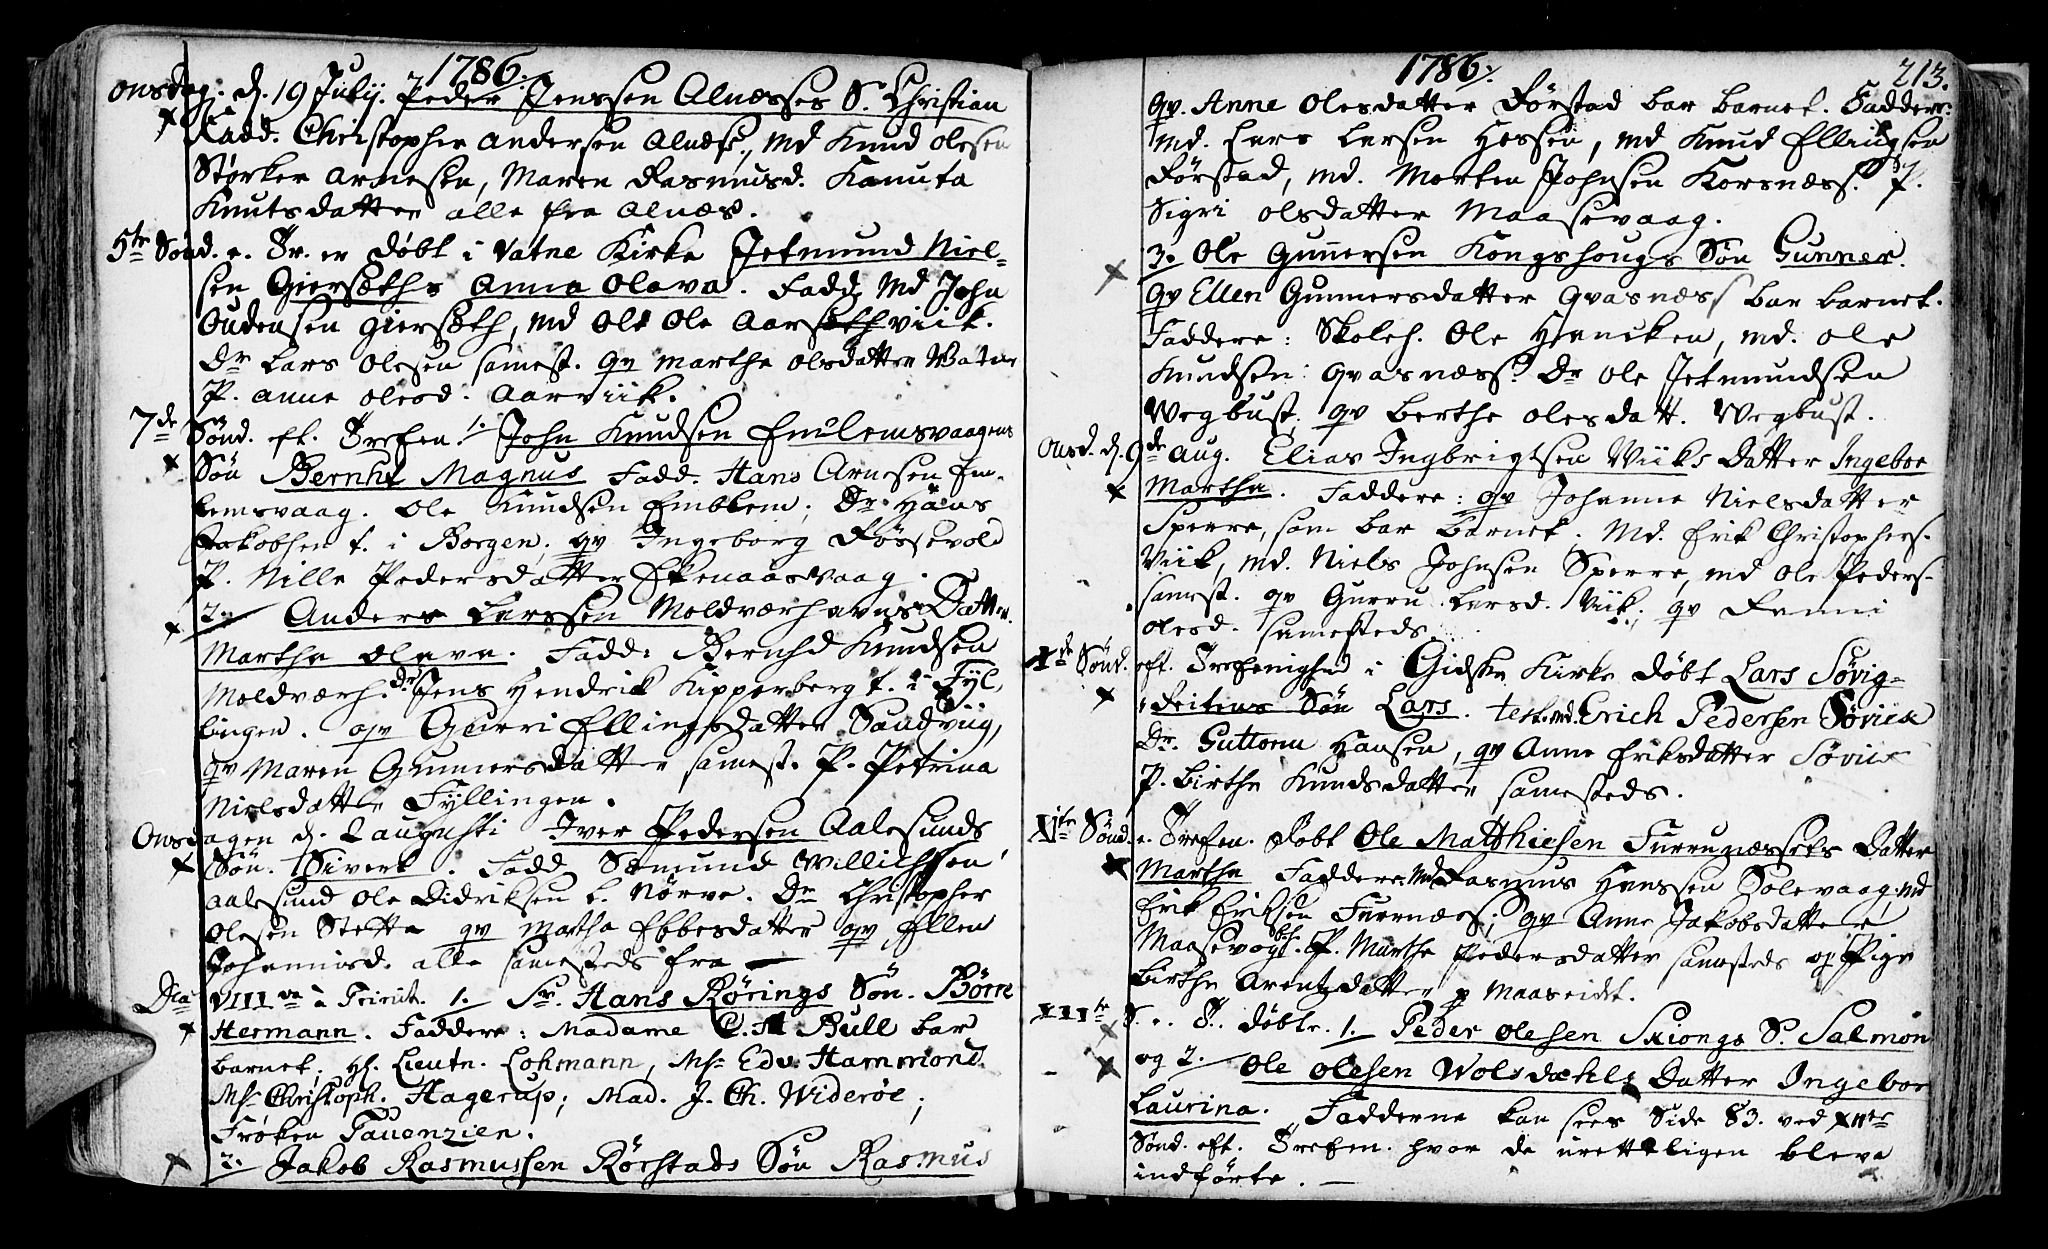 1786.
Onsdag. d. 19 Julij. Peder Jenssen Alnæsses S. Christian
Fadd. Christopher Andersen Alnæs., Md Knud Olesen
Størker Arnesen, Maren Rasmusd. Kanuta
Knutsdatter alle fra Alnæs.
5te Sønd. e. Tr. er døbt i Vatne Kirke Jetmund Niel-
sen Giersæths Anna Olava. Fadd. Md John
Oudensen Giersæth, Md Ole Ole Aarsethviik.
Dr Lars Olesen samest. qv Marthe Olsdatter Vatne
P. Anne Olesd. Aarviik.
7de Sønd. eft. Trefen. 1. John Knudsen Emlemsvaagens
Søn Bernht Magnus Fadd. Hans Arnesen Em-
lemsvaag. Ole Knudsen Emblem; Dr. Hans
Jakobsen t. i Borgen, qv Ingeborg Røssevold
P. Nille Pedersdatter Ekenaasvaag.
2. Anders Larssen Moldværhavns Datter.
Martha Olava. Fadd: Bernhd Knudsen
Moldværh. dr Jens Hendrik Kipperberg t. i Fyl-
lingen. qv Gurri Ellingsdatter Sandviig,
qv Maren Gunnersdatter samest. P. Petrina
Nielsdatter Fyllingen.
Onsdagen d. 2 Augusti Iver Pedersen Aalesunds
Søn. Sivert. Fadd Sæmund Willichsen
Aalesund Ole Didriksen t. Nørve. Dr Christopher
Olesen Stette qv Martha Ebbesdatter qv Ellen
Johannisd. alle samesteds fra
Dca VIIIva à Trinit. 1. Sr. Hans Rørings Søn. Børre
Hermann. Faddere: Madame C. M Bull bar
barnet; Hl. Lieutn. Lohmann, Ms. Edv. Hammond.
Ms. Christoph. Hagerup; Mad. J. Ch. Widerøe;
Frøken Tauenzien.
2. Jakob Rasmussen Rørstads Søn Rasmus
1786. 213.
qv. Anne Olesdatter Rørstad bar barnet. Faddere:
Md. Lars Larsen Hessen, Md Knud Ellingsen
Rørstad, Md. Morten Johnsen Korsnæss. P.
Sigri Olsdatter Maasevaag.
3. Ole Gunnersen Kongshougs Søn Gunner.
qv Ellen Gunnersdatter Qvasnæss bar barnet.
Faddere: Skoleh. Ole Hencken, Md. Ole
Knudsen Qvasnæss. Dr Ole Jetmundsen
Wegbust, qv Berthe Olesdatt. Wegbust.
Onsd. d. 9de Aug. Elias Ingbrigtsen Viiks Datter Ingebor
Martha. Faddere: qv Johanne Nielsdatter
Sperre, som bar barnet. Md. Erik Christophers.
Viik, Md. Niels Johnsen Sperre, Md Ole Peders.
samest. qv Gurru Larsd. Viik; qv Renni
Olesd. samesteds.
Xde Sønd. eft. Trefenighed i Gidske Kirke døbt Lars Søvig-
Reitens Søn Lars. test. Md. Erich Pedersen Søviik
Dr. Guttorm Hansen, qv Anne Eriksdatter Søviik
P. Birthe Knudsdatter samesteds.
XIte Sønd. e. Trefen. døbt Ole Matthiesen Furrunæssets Datter
Martha Faddere. Md Rasmus Hanssen Solevaag. Md
Erik Eriksen Furrnæss; qv Anne Jakobsdatter
Maasevog; P. Marthe Pedersdatter samesteds og Pige
Birthe Arentzdatter p Maaseidet.
XIIte S. e. T. døbte. 1. Peder Olesen Skiongs S. Salmon
og 2. Ole Olesen Wolsdahls Datter Ingebor
Laurina. Fadderne kan sees Side 83. ved XIIte
Sønd. eft. Trefen. hvor de urettelig en bleve
indførte.